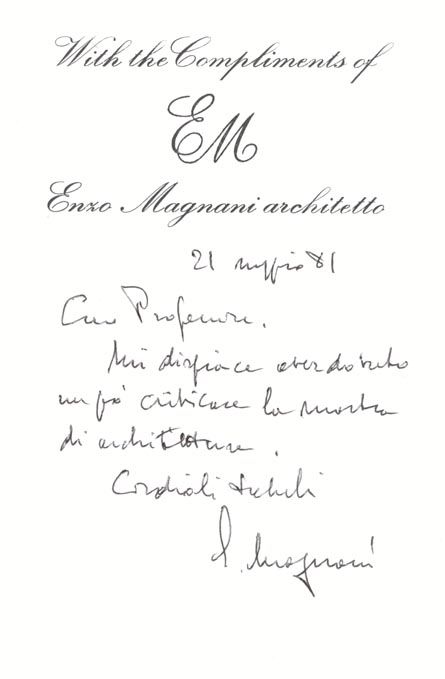 With the Compliments of
EM
Enzo Magnani architetto
21 maggio 81
Caro Professore,
Mi dispiace aver dovuto
un pò criticare la mostra
di architettura.
Cordiali saluti
E. Magnani